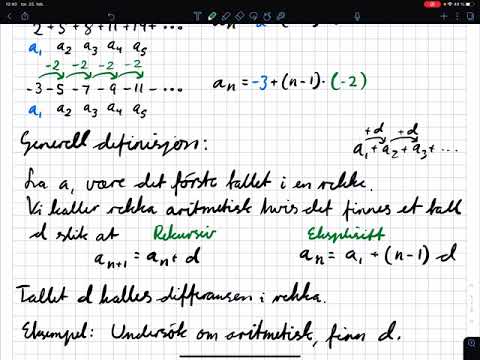 12:40 tor. 25. feb. 49 %
2 + 5 + 8 + 11 + 14 + ...
a₁ a₂ a₃ a₄ a₅
-2 -2 -2 -2
-3 -5 -7 -9 -11 - ... aₙ = -3 + (n-1) · (-2)
a₁ a₂ a₃ a₄ a₅
Generell definisjon:
+d +d
a₁ + a₂ + a₃ + ...
La a₁ være det første tallet i en rekke.
Vi kaller rekka aritmetisk hvis det finnes et tall
d slik at Rekursiv Eksplisitt
aₙ₊₁ = aₙ + d aₙ = a₁ + (n-1) · d
Tallet d kalles differansen i rekka.
Eksempel: Undersøk om aritmetisk, finn d.